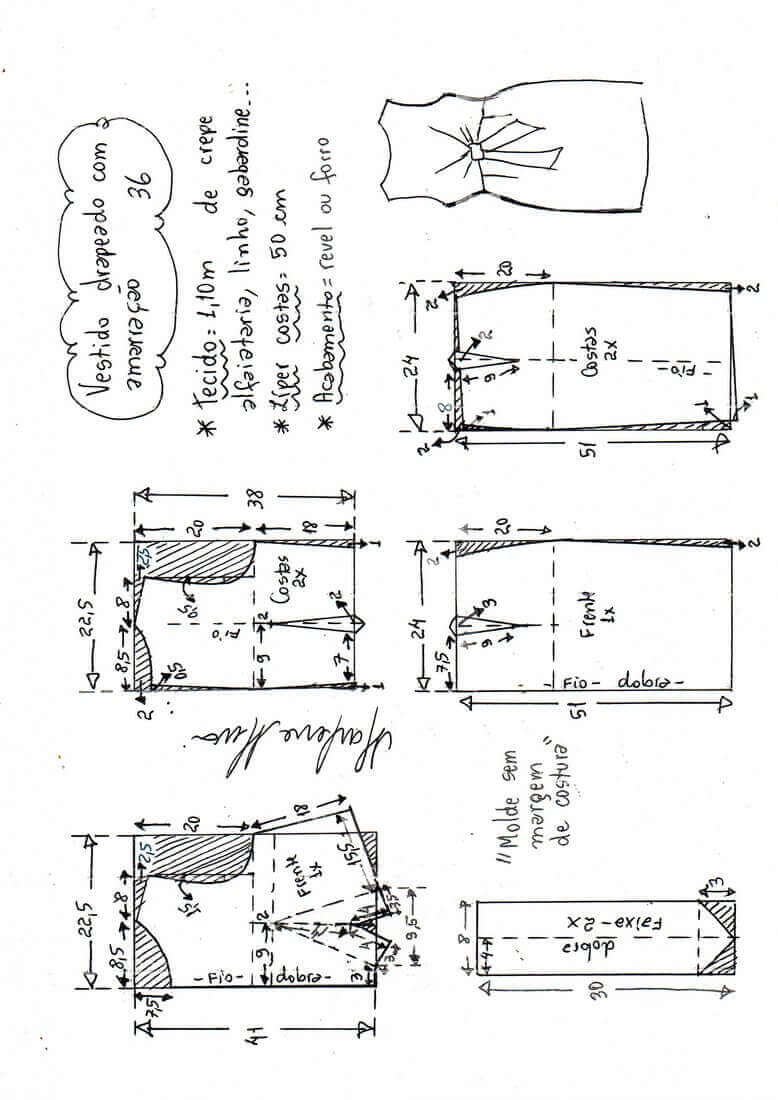 Vestido drapeado com a
amarração 36
* Tecido = 1,10m de crepe
alfaiataria, linho, gabardine...
* Zíper costas = 50 cm
* Acabamento = revel ou forro
22,5
8,5
8
2,5
7,5
1,5
20
18
41
9
2
Frente
1x
- Fio - dobra -
15,5
3,5
9,5
3
3
22,5
8,5
8
2,5
2
0,5
0,5
20
18
38
Costas
2x
Fio
9
2
7
2
1
1
Marlene Mukai
24
7,5
9
3
2
20
Frente
1x
- Fio - dobra -
51
2
24
8
2
2
1
9
2
20
Costas
2x
Fio
51
1
1
2
"Molde sem
margem
de costura"
8
4
dobra
Faixa - 2x
3
30